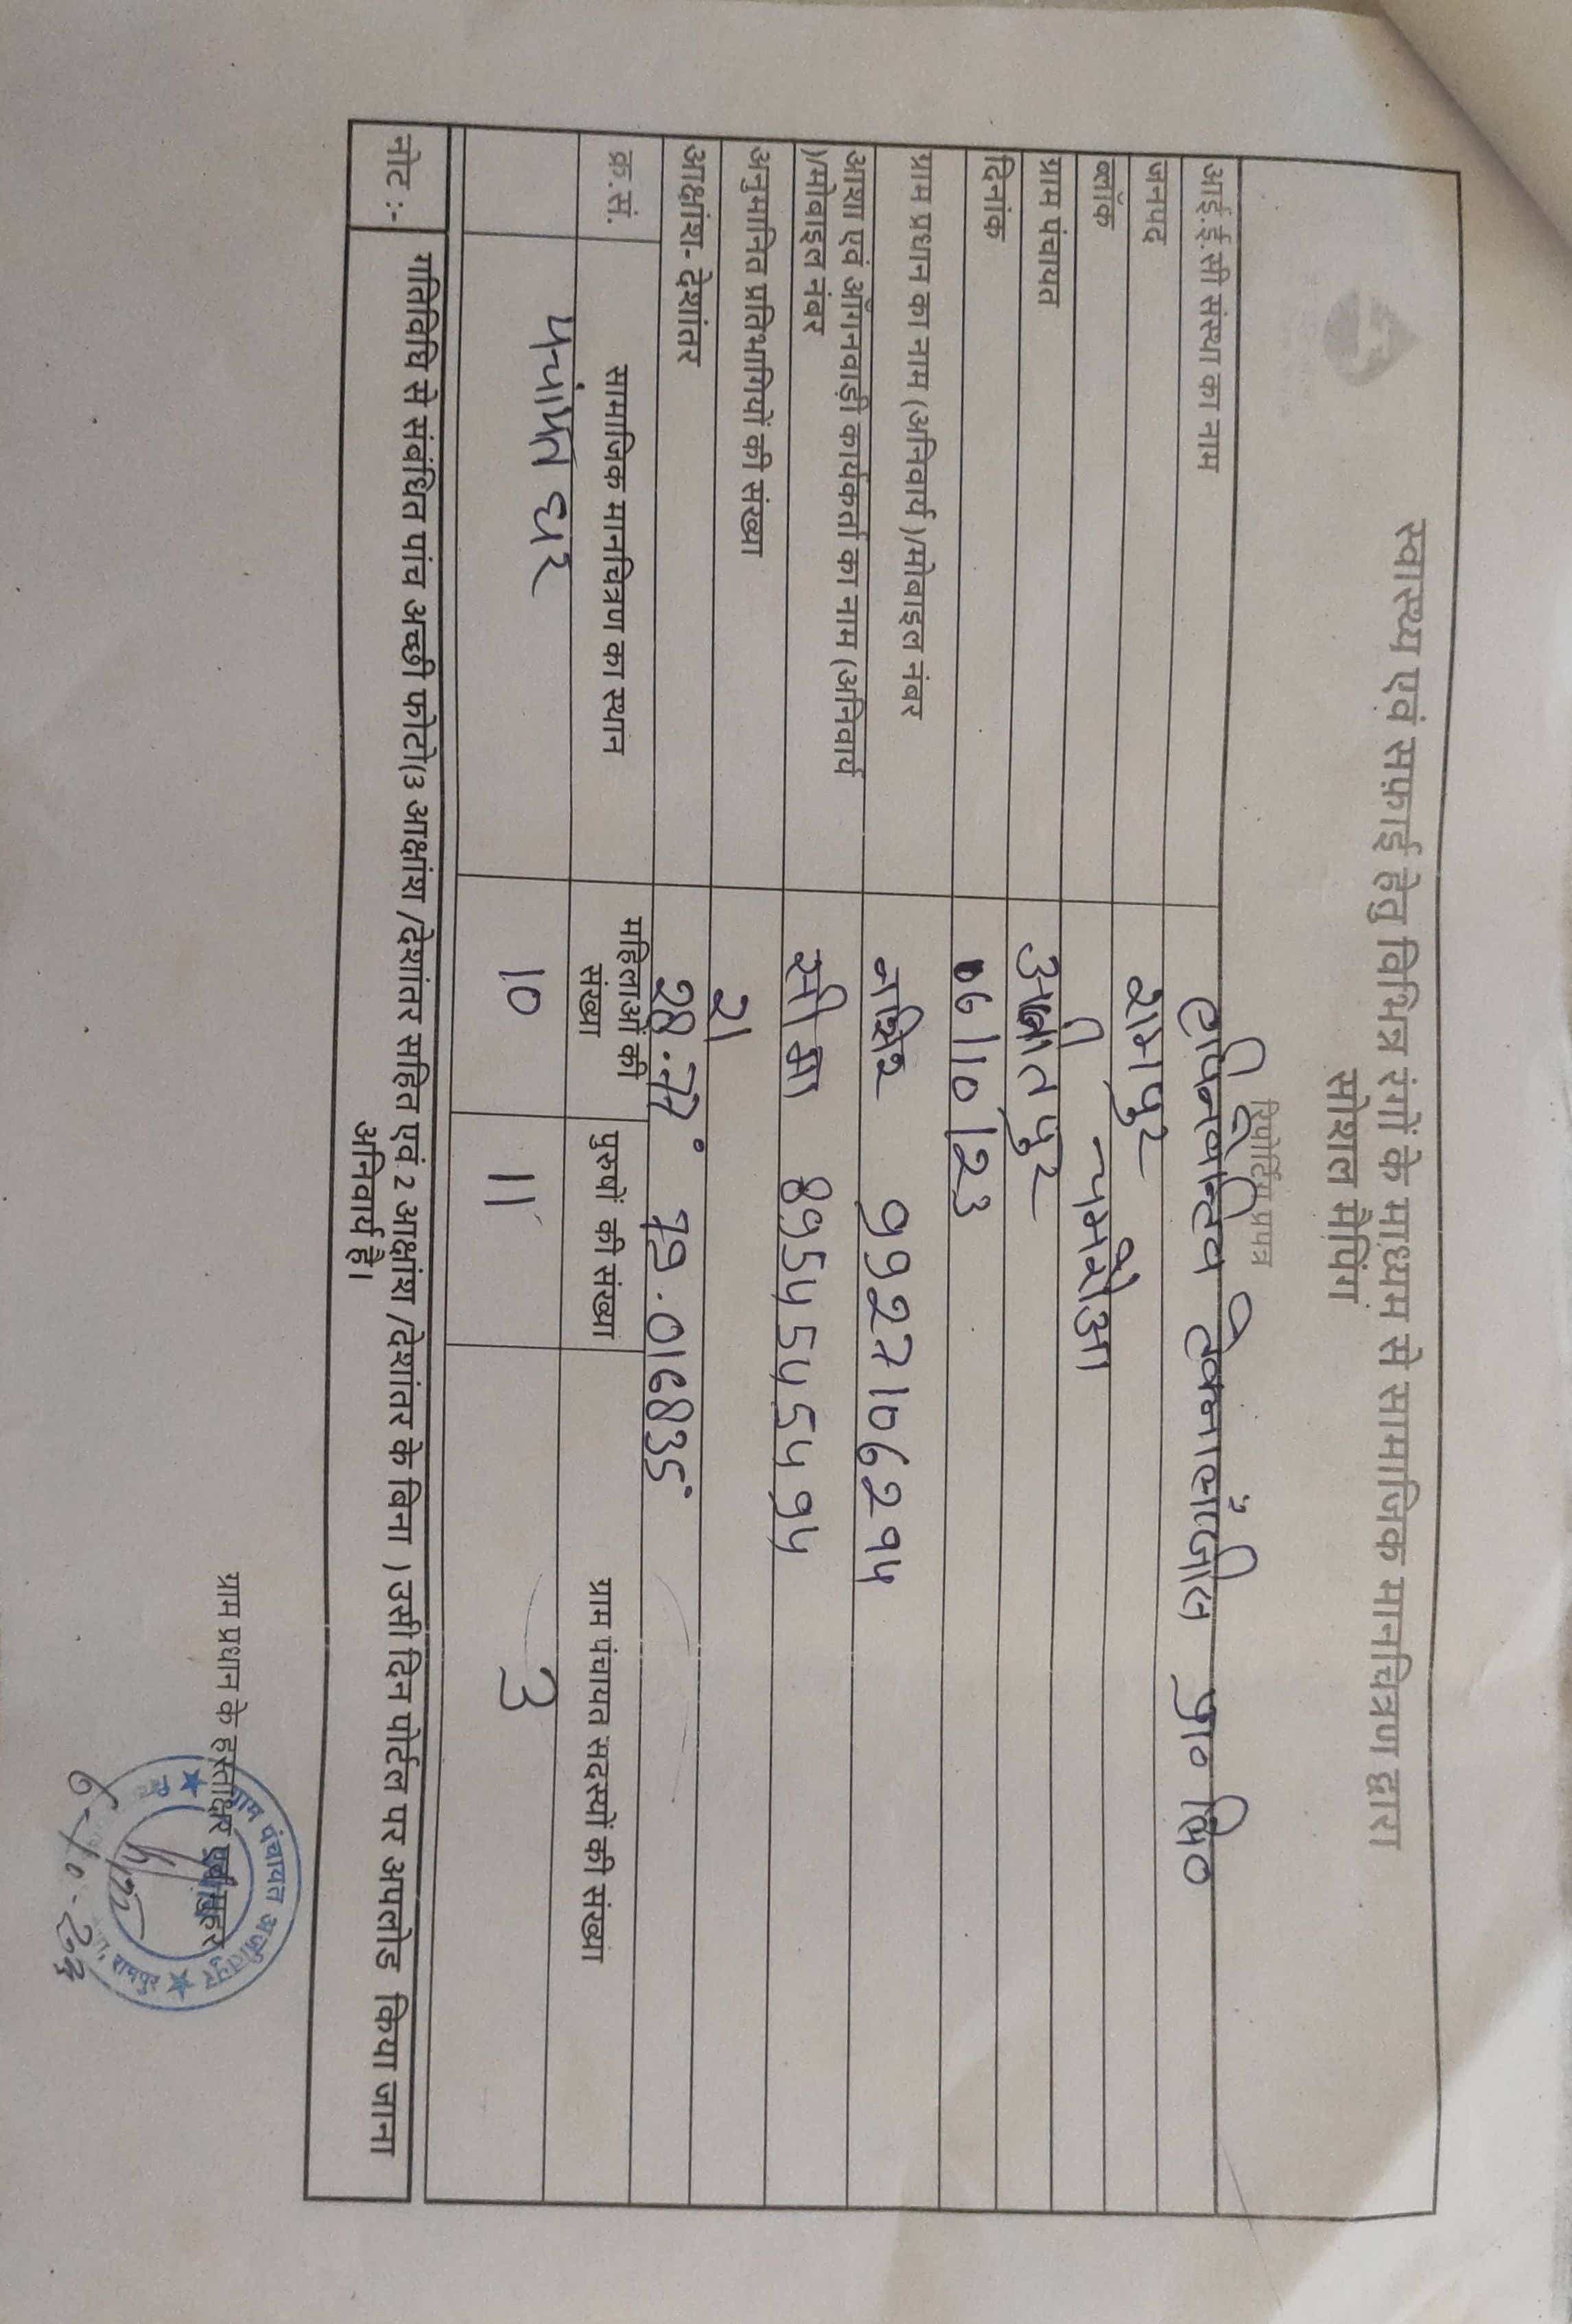 स्वास्थ्य एवं सफ़ाई हेतु विभिन्न रंगों के माध्यम से सामाजिक मानचित्रण द्वारा
सोशल मैपिंग
रिपोर्टिंग प्रपत्र
आई.ई.सी संस्था का नाम प्रा० लि०
जनपद रामपुर
ब्लॉक
ग्राम पंचायत अजीतपुर
दिनांक 06/10/23
ग्राम प्रधान का नाम (अनिवार्य)/मोबाइल नंबर 9927106294
आशा एवं आँगनवाड़ी कार्यकर्ता का नाम (अनिवार्य
)/मोबाइल नंबर सीमा 8954545494
अनुमानित प्रतिभागियों की संख्या 21
आक्षांश- देशांतर 28.77° 79.016835°
क्र.सं. सामाजिक मानचित्रण का स्थान महिलाओं की संख्या पुरुषों की संख्या ग्राम पंचायत सदस्यों की संख्या
पंचायत घर 10 11 3
नोट :- गतिविधि से संबंधित पांच अच्छी फोटो(3 आक्षांश /देशांतर सहित एवं 2 आक्षांश /देशांतर के बिना ) उसी दिन पोर्टल पर अपलोड किया जाना
अनिवार्य है।
ग्राम प्रधान के हस्ताक्षर एवं मुहर
ग्राम पंचायत अजीतपुर